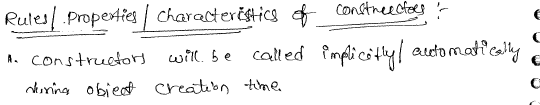 Rules/ Properties/ characteristics of constructors :-
1. constructors will be called implicitly/ automatically
during object creation time.